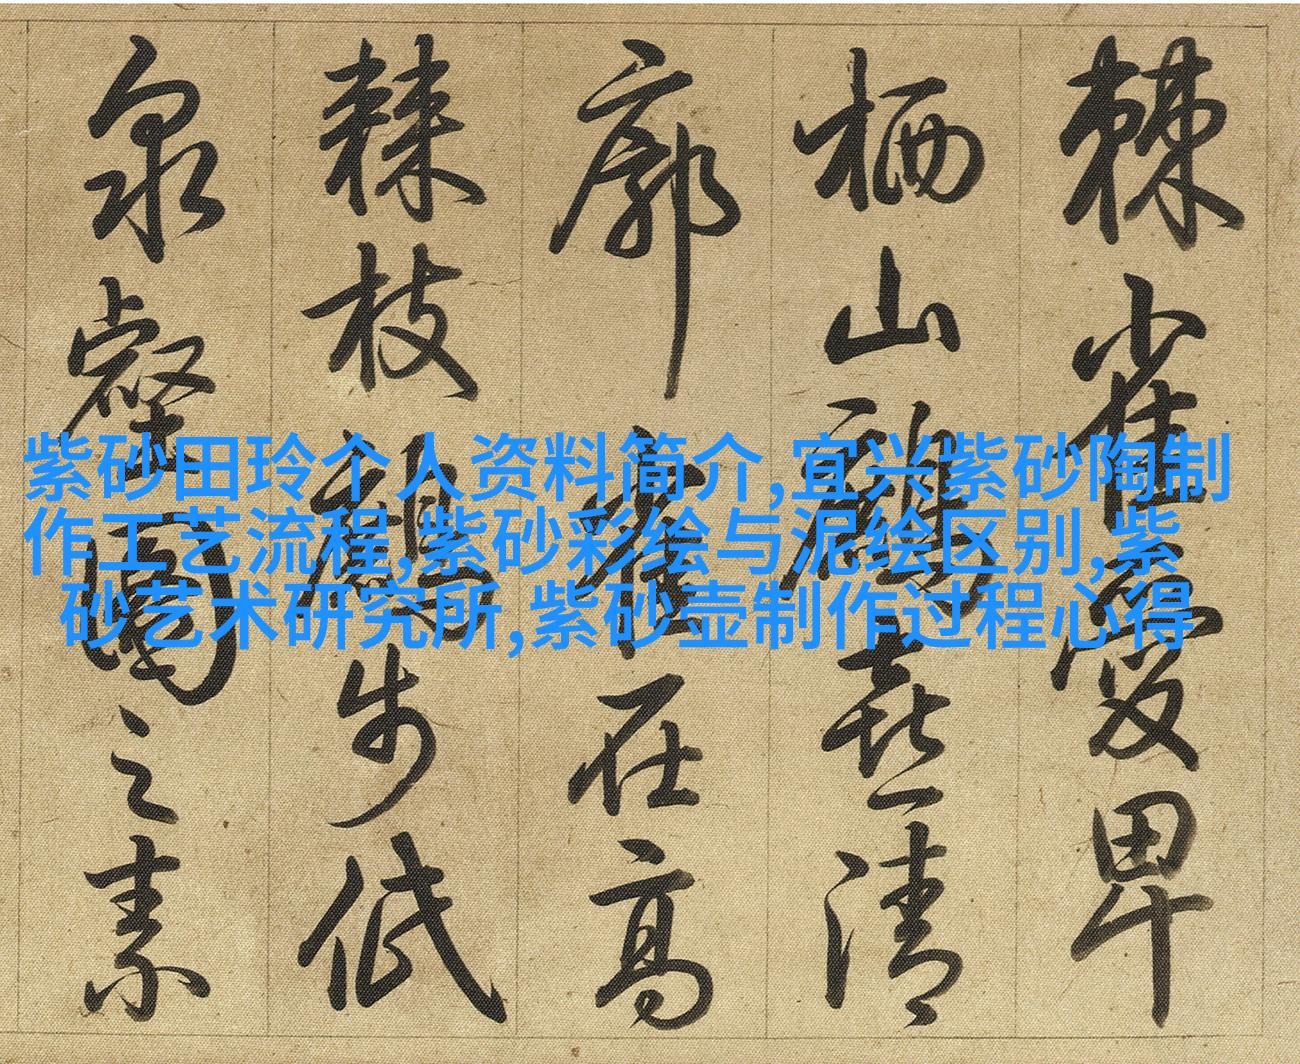 棘雀愛卑
栖山喜清
廓雀在高
棘枝步低
泉壑圖之素
紫砂田玲个人资料简介,宜兴紫砂陶制
作工艺流程,紫砂彩绘与泥绘区别,紫
砂艺术研究所,紫砂壶制作过程心得